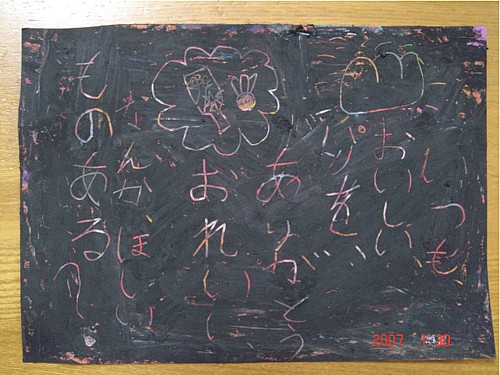 いつも
おいしい
パンを
ありがとう
おれいに
なんかほしい
ものある?
2007 1 30